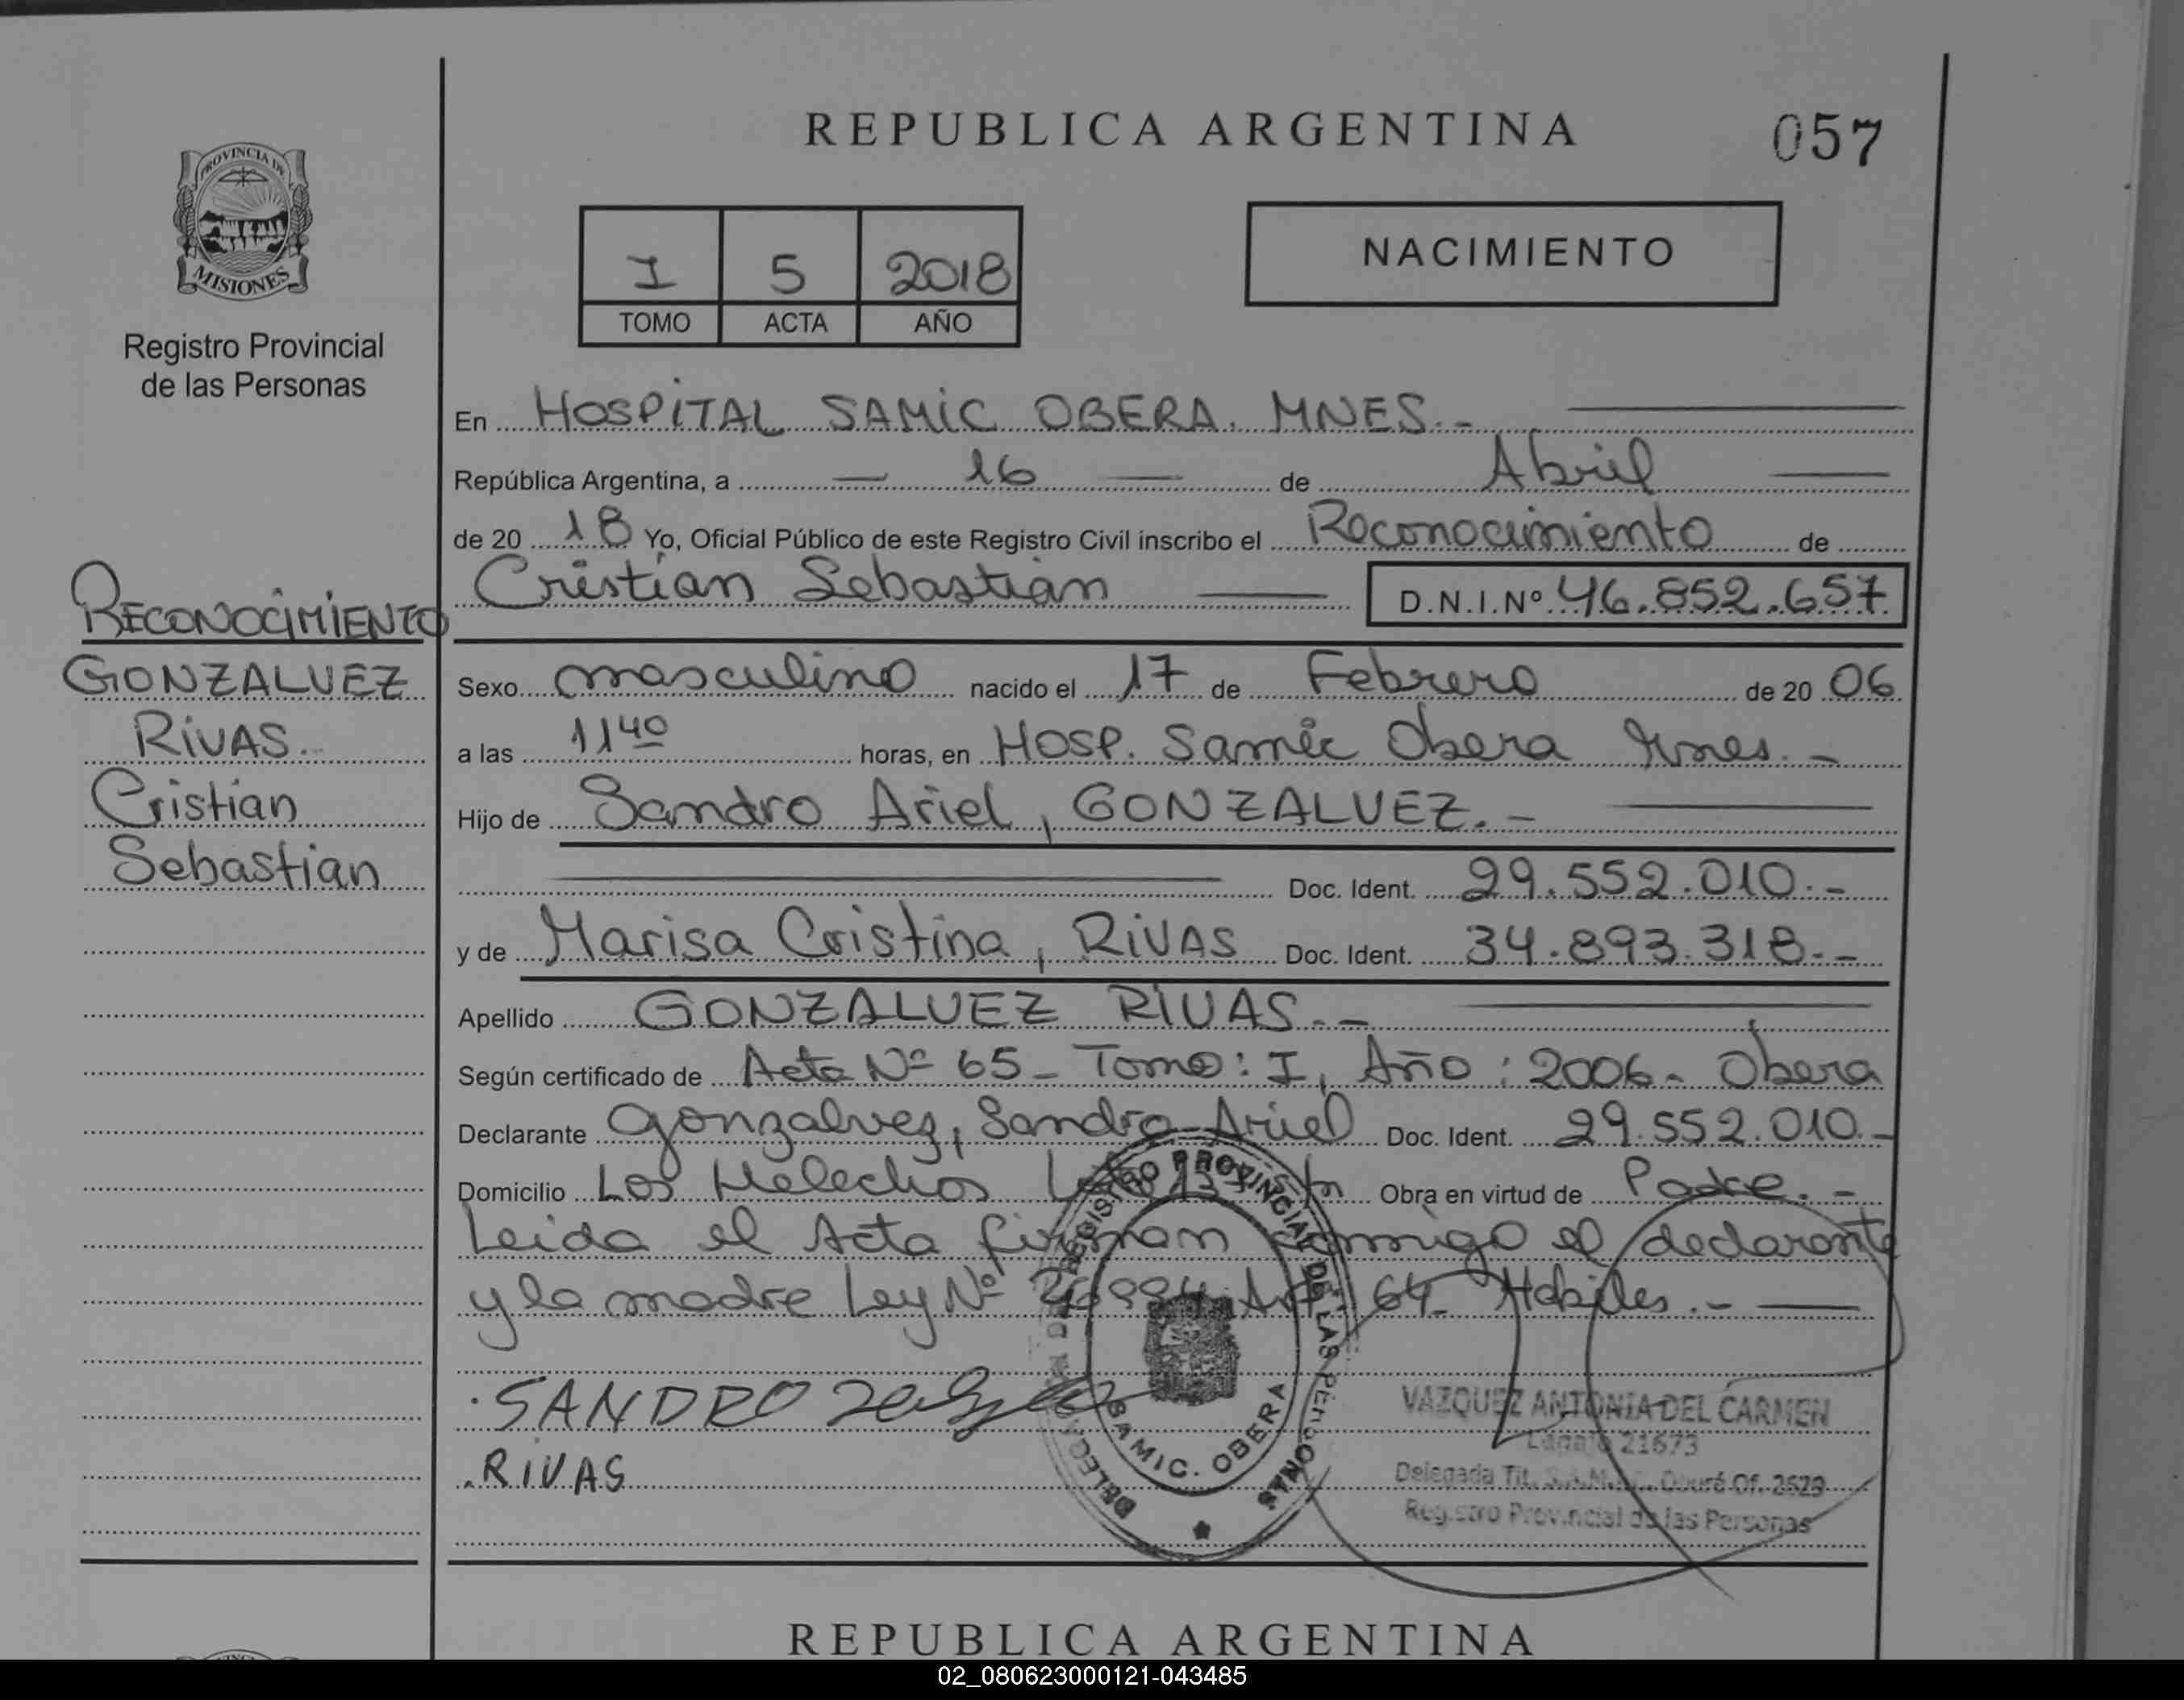 REPUBLICA ARGENTINA
057
PROVINCIA DE
MISIONES
Registro Provincial
de las Personas
I 5 2018
TOMO ACTA AÑO
NACIMIENTO
En HOSPITAL SAMIC OBERA. MNES.-
República Argentina, a 16 de Abril
de 20 18 Yo, Oficial Público de este Registro Civil inscribo el Reconocimiento de
Cristian Sebastian D.N.I.Nº 46.852.657
RECONOCIMIENTO
GONZALVEZ
RIVAS.
Cristian
Sebastian
Sexo masculino nacido el 17 de Febrero de 20 06
a las 11 40 horas, en Hosp. Samic Obera Mnes.-
Hijo de Sandro Ariel, GONZALVEZ.-
Doc. Ident. 29.552.010.-
y de Marisa Cristina, RIVAS Doc. Ident. 34.893.318.-
Apellido GONZALVEZ RIVAS.-
Según certificado de Acta Nº 65- Tomo: I, Año: 2006- Obera
Declarante Gonzalvez, Sandro Ariel Doc. Ident. 29.552.010.-
Domicilio Los Helechos Obra en virtud de Padre.-
Leida el Acta firman conmigo el declarante
y la madre Ley Nº 26994 Art 64- Habiles.-
SANDRO
RIVAS
REGISTRO PROVINCIAL DE LAS PERSONAS
SAMIC. OBERA
VAZQUEZ ANTONIA DEL CARMEN
Legajo 21673
Delegada Tit. S.A.M.I.C. Oberá Of. 2629
Registro Provincial de las Personas
REPUBLICA ARGENTINA
02_080623000121-043485